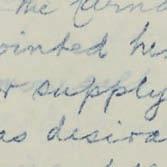 The
ointed he
supply
as desira